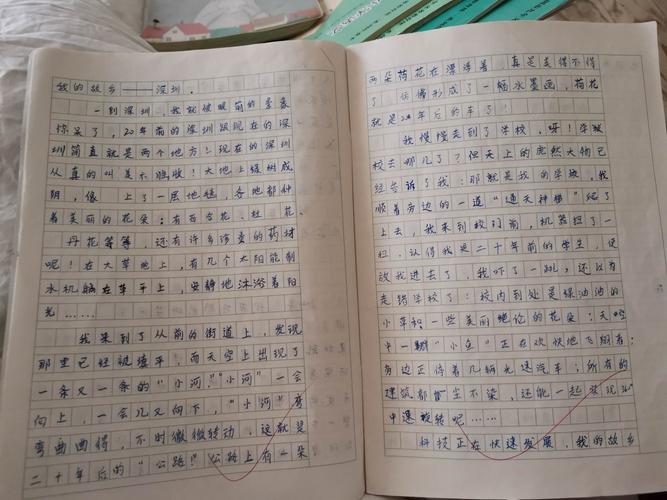 我的故乡——深圳.
一到深圳,我就被眼前的景象
惊呆了,20年前的深圳跟现在的深
圳简直就是两个地方!现在的深圳
从真的叫美不胜收!大地上绿树成
阴,像 上了一层地毯,各地都种
着美丽的花朵:有百合花、杜 花、
丹花等等,还有许多珍贵的药材
呢!在大草地上,有几个太阳能制
水机躺在草平上,安静地沐浴着阳
光……
我来到了从前的街道上,发现
那里已经被填平,而天空上出现了
一条又一条的“小河”“小河”一会
向上,一会儿又向下,“小河”弯
弯曲曲得,不时微微转动,这就是
二十年后的“公路!”公路上有一朵
两朵荷花在漂浮着 真是美得不得
了 仿佛形成了一幅水墨画,荷花
就是20年后的车了!
我慢慢走到了学校,呀!学校
校去哪儿了?但天上的庞然大物已
经告诉了我:那就是我的学校,我
顺着旁边的一道“通天神梯”爬了
上去,我来到校门前,机器扫了一
扫,认得我是二十年前的学生,便
放我进去了,我吓了一跳,还以为
走错学校了!校内到处是绿油油的
小草和一些美丽绝伦的花朵;天空
中一群“小鱼”正在欢快地飞翔着;
旁边正停着几辆光速汽车;所有的
建筑都 尘不染,还能一起
中 旋转呢……
科技正在快速发展,我的故乡